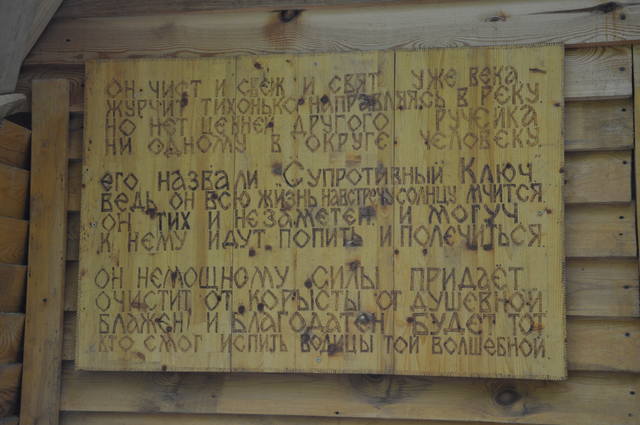 он чист и свеж и свят уже века
журчит тихонько направляясь в реку
но нет ценней другого ручейка
ни одному в округе человеку.
его назвали Супротивный Ключ
ведь он всю жизнь навстречу солнцу мчится.
он тих и незаметен и могуч
к нему идут попить и полечиться.
он немощному силы придаёт
очистит от корысты от душевной
блажен и благодатен будет тот
кто смог испить водицы той волшебной